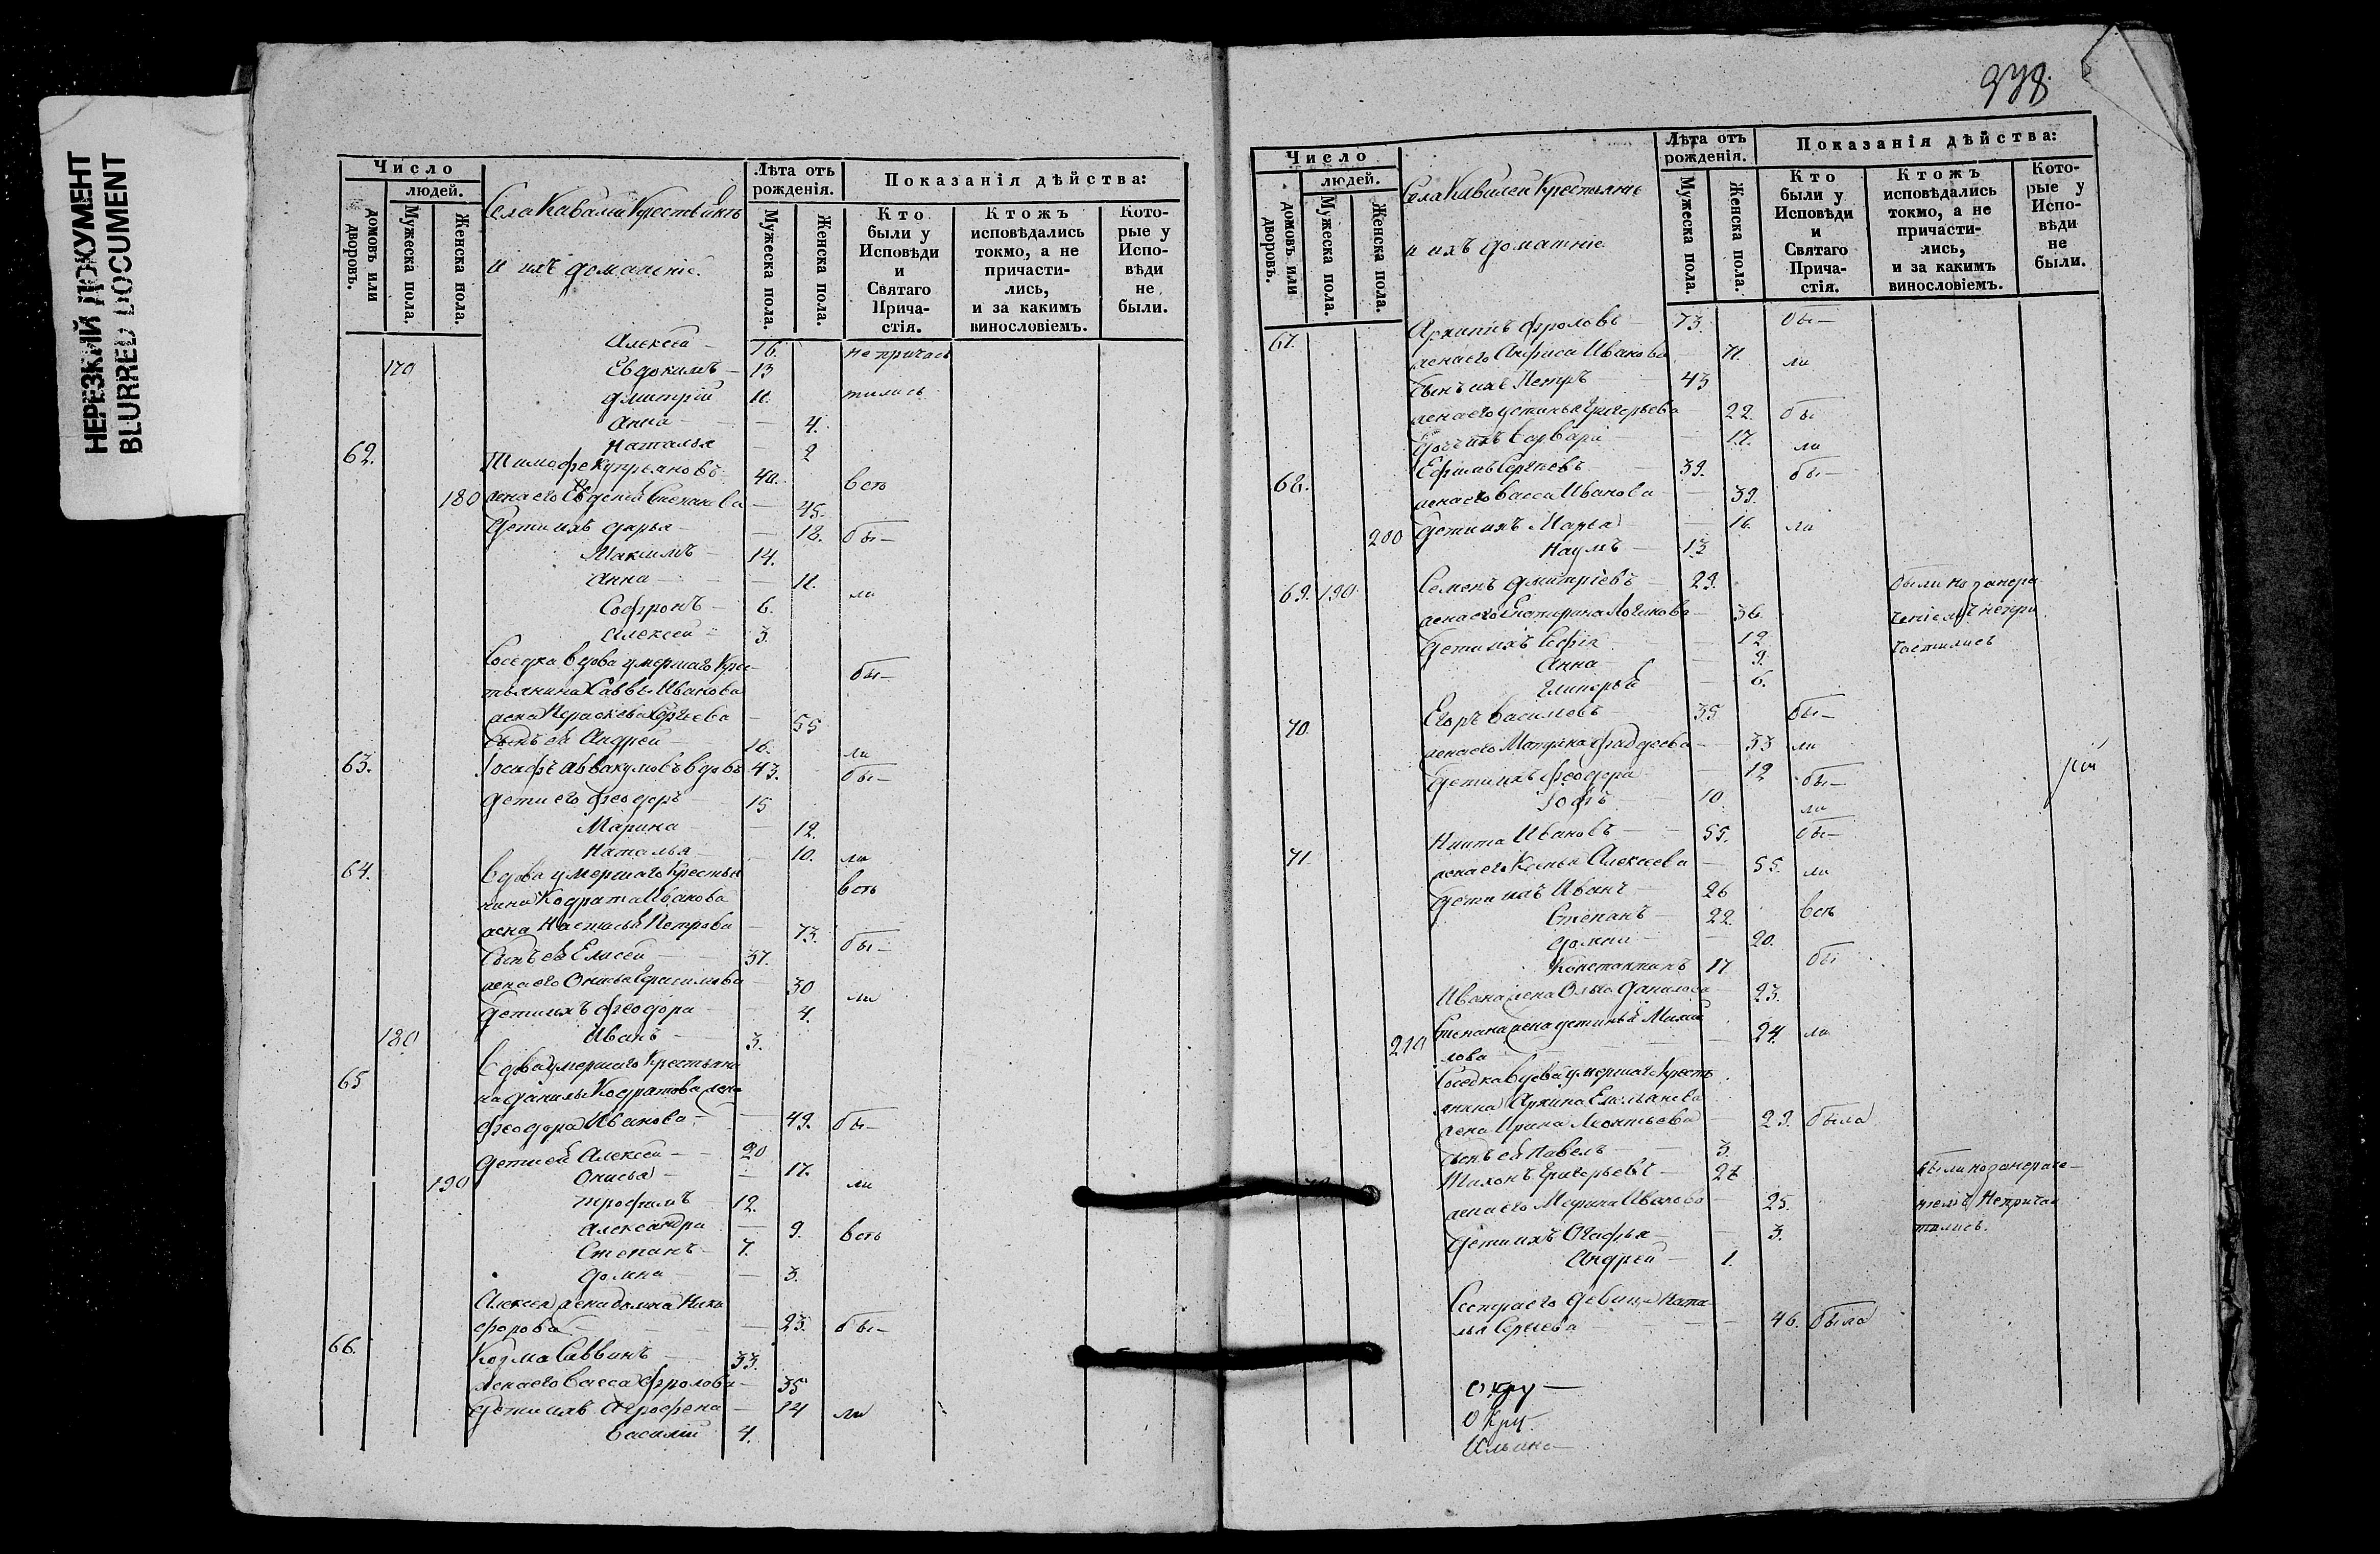 НЕРЕЗКИЙ ДОКУМЕНТ
BLURRED DOCUMENT
Число
людей.
домовъ или дворовъ.
Мужеска пола.
Женска пола.
Села Кавалей Крестьянъ
и ихъ домашніе.
Лѣта отъ рожденія.
Мужеска пола.
Женска пола.
Показанія дѣйства:
Кто были у Исповѣди и Святаго Прича-стія.
Ктожъ исповѣдались токмо, а не причасти-лись, и за какимъ винословіемъ.
Кото-рые у Испо-вѣди не были.
Алексѣй 16. не причас
170 Евдокимъ 13
Дмитрій 11. тились
Анна 4.
Наталья 2
62. Тимофе Купрьяновъ 40. всѣ
180 жена его Степанова 45.
Дети ихъ Дарья 18. бы-
Максимъ 14.
Анна 11. ли
Софронъ 6.
Алексей 3.
Соседка вдова умершаго Крес-
тьянина Саввы Иванова бы-
жена Параскева Сергеева 55
Сынъ ея Андрей 16. ли
63. Іосифъ Аввакумовъ вдовъ 43. бы-
дети его Феодоръ 15
Марина 12.
Наталья 10. ли
64. Вдова умершаго Крестья
нина Кодрата Иванова всѣ
жена Настасья Петрова 73.
Сынъ ея Елисей 37. бы-
жена его Онисья Герасимова 30
Дети ихъ Феодора 4. ли
180 Иванъ 3.
65 Вдова умершаго Крестьяни
на Данилы Кодратова жена
Феодора Иванова 49. бы-
Дети ея Алексей 20
190 Онисья 17. ли
Трофимъ 12.
Александра 9. всѣ
Степанъ 7.
Домна 3.
Алексея жена Ники
форова 23. бы-
66. Козма Саввинъ 33.
жена его Васса Фролова 35
Дети ихъ Агрофена 14 ли
Василій 4.
938.
Число
людей.
домовъ или дворовъ.
Мужеска пола.
Женска пола.
Села Кавалей Крестьянъ
и ихъ домашніе
Лѣта отъ рожденія.
Мужеска пола.
Женска пола.
Показанія дѣйства:
Кто были у Исповѣди и Святаго Прича-стія.
Ктожъ исповѣдались токмо, а не причасти-лись, и за какимъ винословіемъ.
Кото-рые у Испо-вѣди не были.
67. Архипъ Фроловъ 73. бы-
жена его Анфиса Иванова 71. ли
Сынъ ихъ Петръ 43
жена его Устинья Григорьева 22. бы
Дочь ихъ Варвара 17. ли
68. Ефимъ Сергеевъ 39. бы-
жена его Васса Иванова 39.
200 Дети ихъ Марья 16. ли
Наумъ 13
69. 190. Семенъ Дмитріевъ 29. были но
жена его Екатерина Логинова 36.
Дети ихъ Софія 12 частились
Анна 9.
6.
70. Егоръ Василіевъ 35. бы-
жена его Матрена Фаддеева 33 ли
Дети ихъ Феодора 12 бы-
10. ли
71. Никита Ивановъ 55. бы-
жена его Ксенья Алексеева 55. ли
Дети ихъ Иванъ 26
Степанъ 22. всѣ
Домна 20.
Константинъ 17 бы
Ивана жена Ольга Данилова 23.
210 Степана жена Устинья Михай
лова 24. ли
Соседка вдова умершаго Кресть
янина Архипа Емельянова
жена Ирина Леонтьева 29. была
Сынъ ея Павелъ 3.
Тихонъ Григорьевъ 27 были но
жена его Марина Иванова 25. Неприча
Дети ихъ Огафья 3. тились.
Андрей 1.
Сестра его девица Ната-
лья Сергеева 46. была